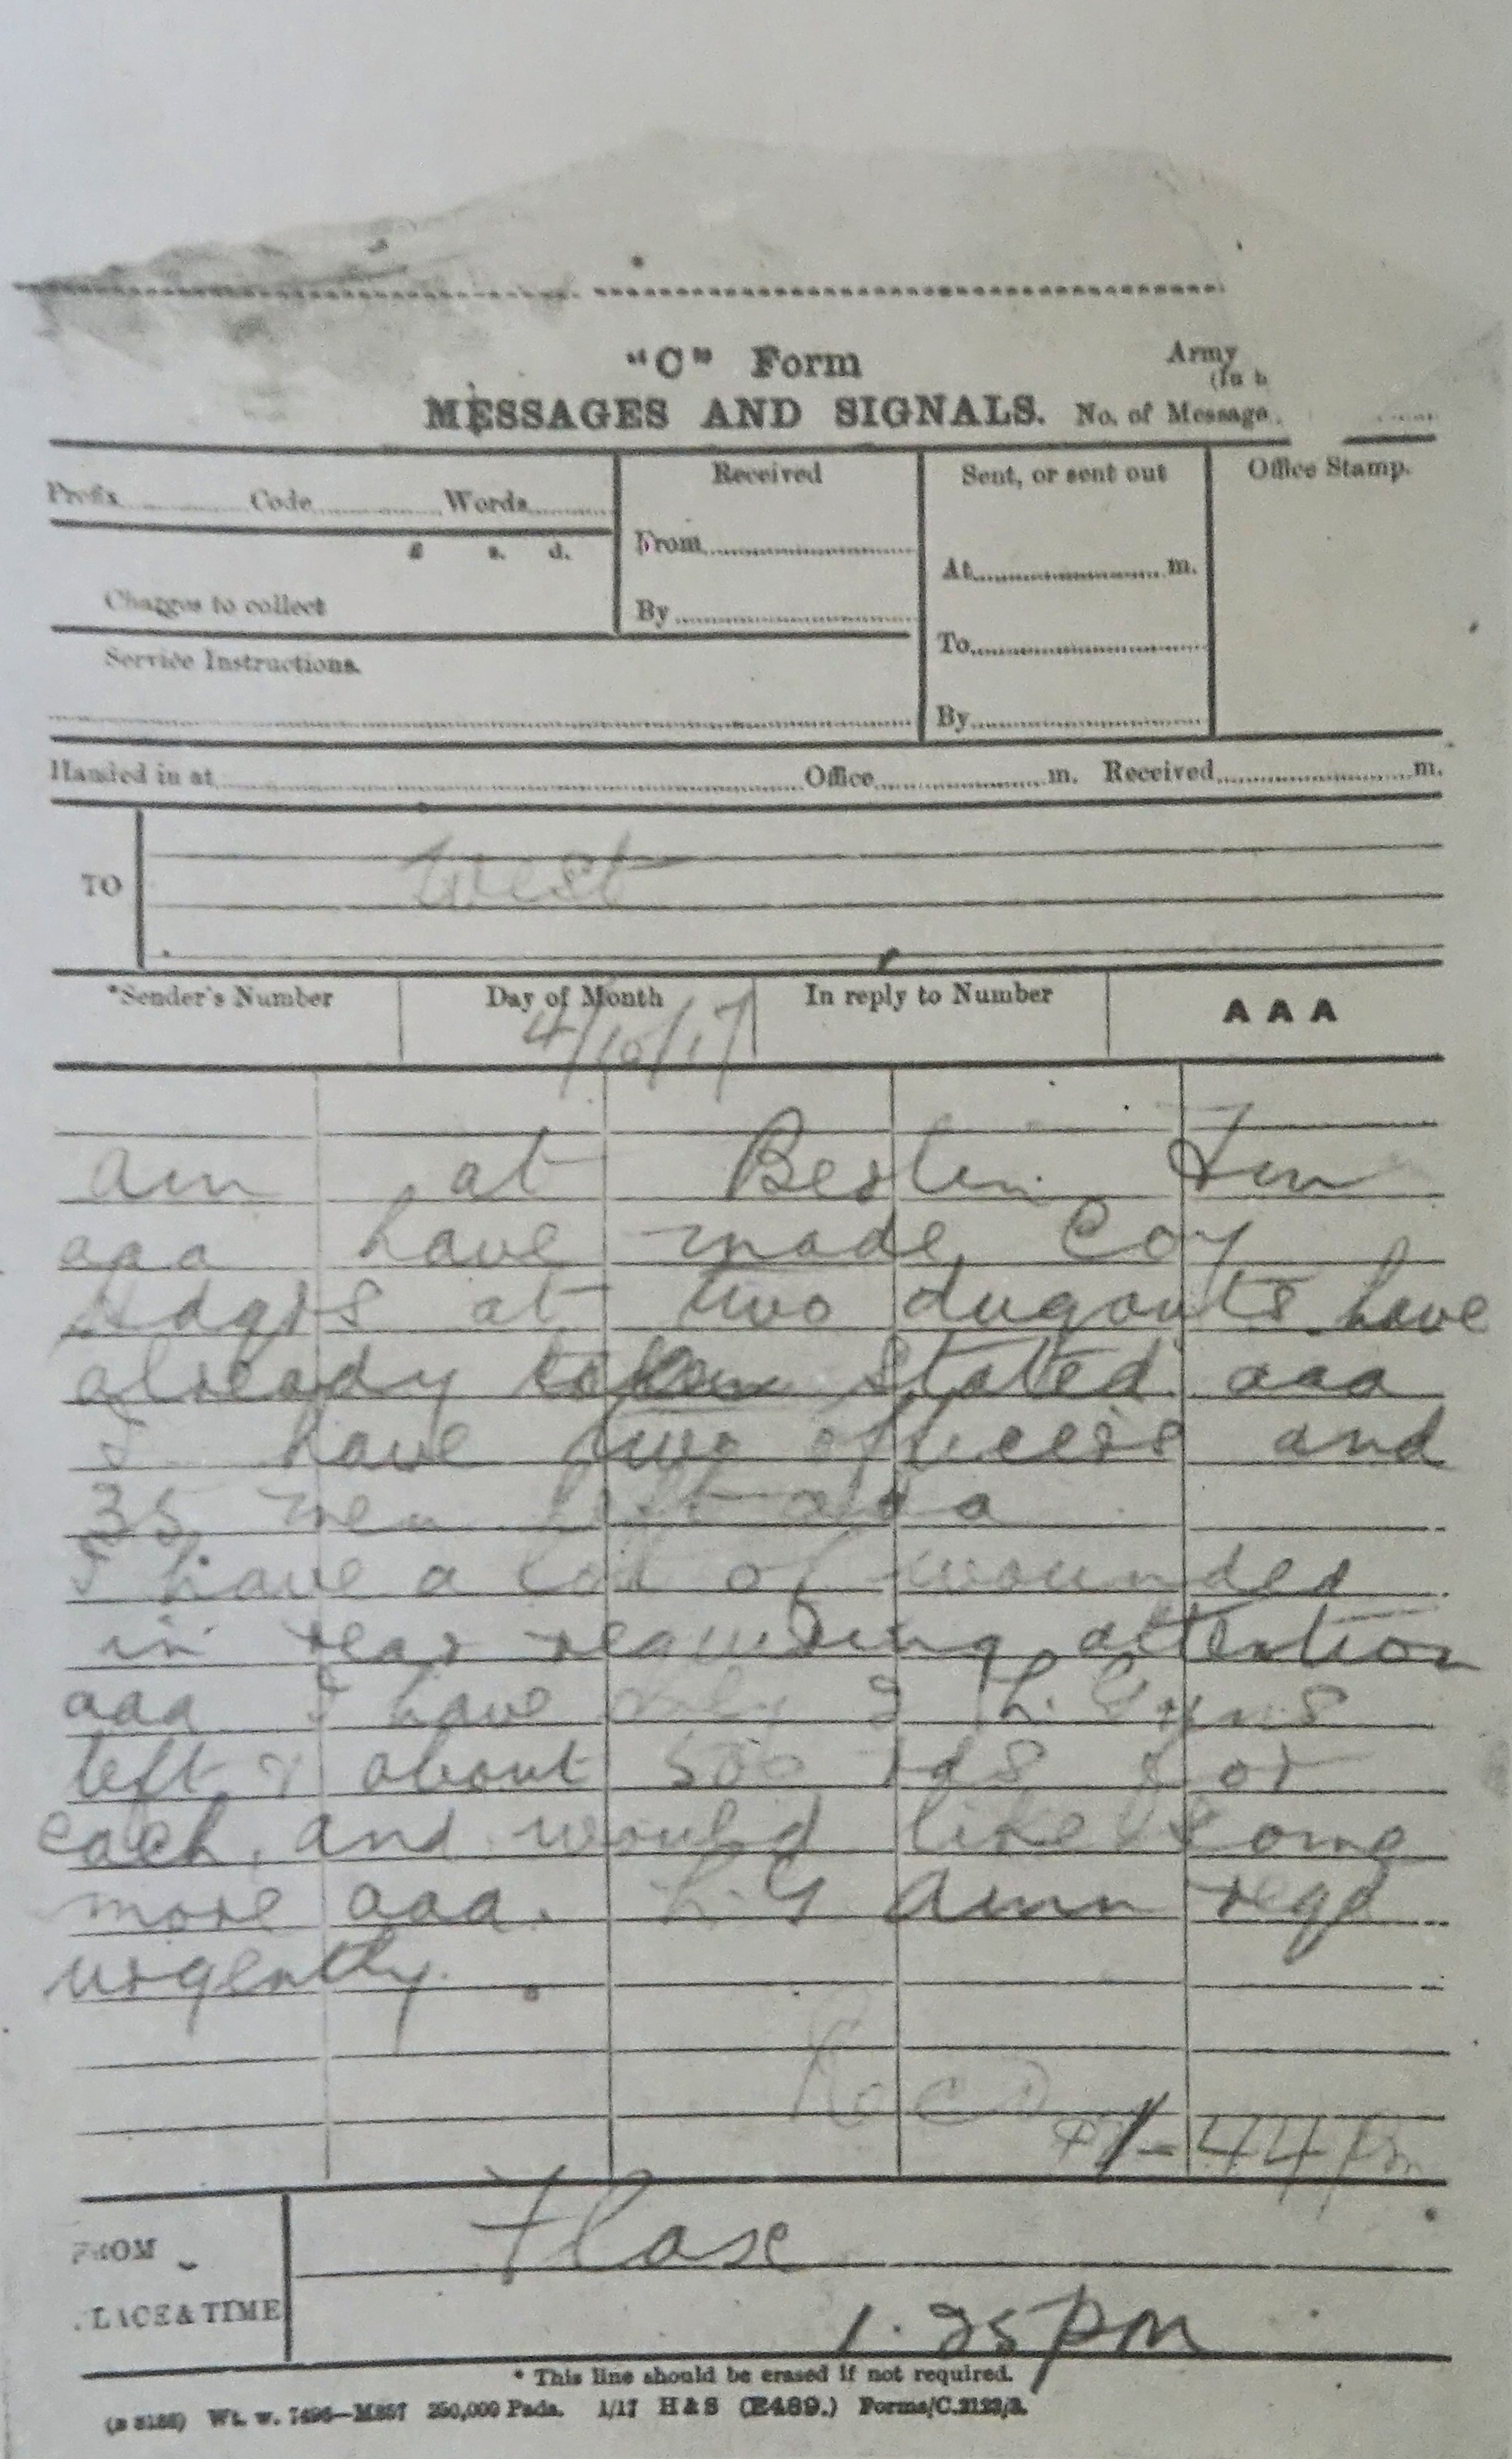 "C" Form
Army
(In b
MESSAGES AND SIGNALS. No. of Message
Prefix Code Words
Received
Sent, or sent out
Office Stamp.
£ s. d.
From
At m.
Charges to collect
By
To
Service Instructions.
By
Handed in at Office m. Received m.
TO West
*Sender's Number Day of Month In reply to Number AAA
4/10/17
am at Berlin
aaa have made Coy
Hdqrs at two dugouts have
already stated aaa
I have two officers and
35 men left aaa
I have a lot of wounded
in rear requiring attention
aaa I have only 2 L. Guns
left & about 500 rds for
each, and would like some
more aaa. L.G Amn reqd
urgently.
1-44 pm
FROM
LACE & TIME
1.25 pm
* This line should be erased if not required.
Wt. w. 7496—M857 250,000 Pads. 1/17 H & S (E489.) Forms/C.2123/3.